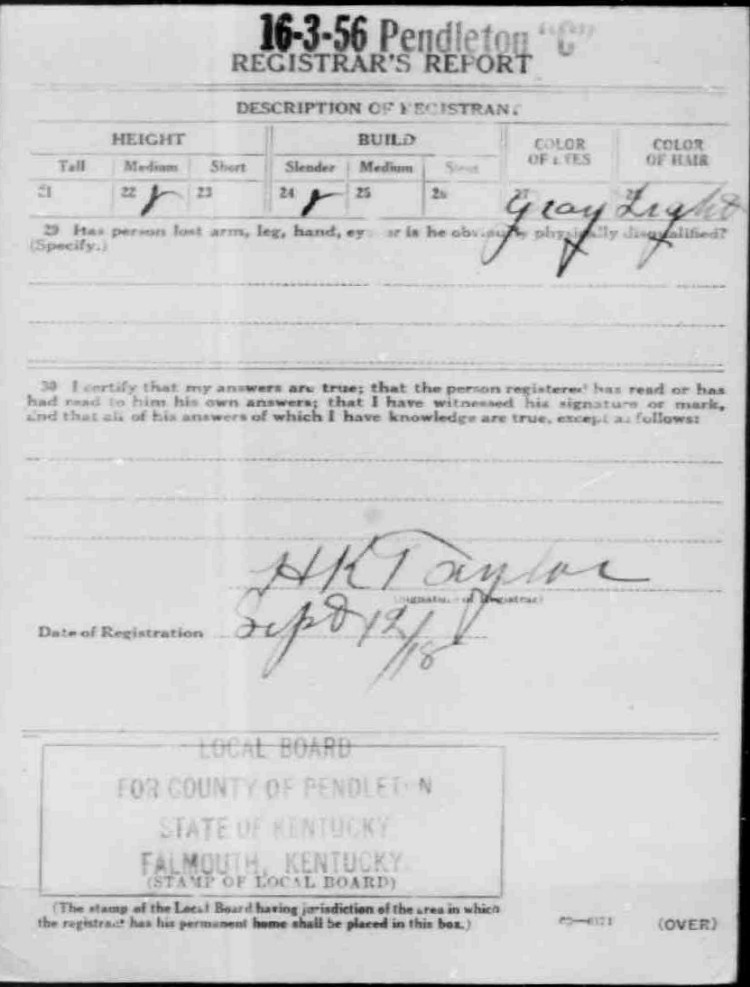 16-3-56 Pendleton "C"
REGISTRAR'S REPORT
DESCRIPTION OF REGISTRANT
HEIGHT BUILD COLOR OF EYES COLOR OF HAIR
Tall Medium Short Slender Medium Stout
21 22 23 24 25 26 27 28
Gray Light
29 Has person lost arm, leg, hand, eye or is he obviously physically disqualified?
(Specify.)
30 I certify that my answers are true; that the person registered has read or has
had read to him his own answers; that I have witnessed his signature or mark,
and that all of his answers of which I have knowledge are true, except as follows:
H K Taylor
(Signature of Registrar)
Date of Registration Sept 12/18
LOCAL BOARD
FOR COUNTY OF PENDLETON
STATE OF KENTUCKY
FALMOUTH, KENTUCKY
(STAMP OF LOCAL BOARD)
(The stamp of the Local Board having jurisdiction of the area in which
the registrant has his permanent home shall be placed in this box.)
(OVER)